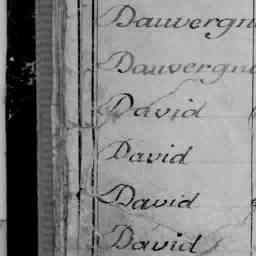 Dauvergn
Dauvergn
David
David
David
David